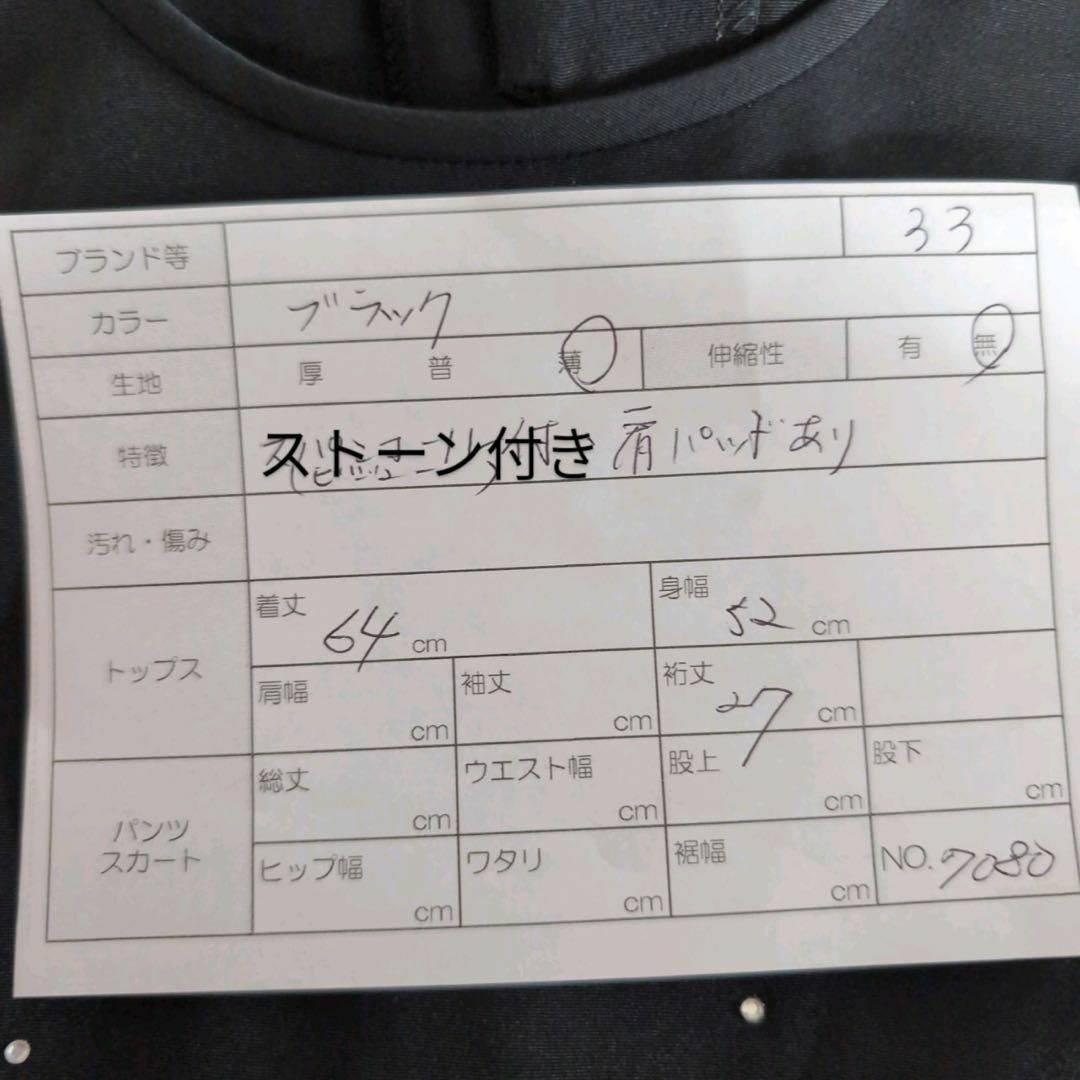 ブランド等 33
カラー ブラック
生地 厚 普 薄 伸縮性 有 無
特徴 ストーン付き 肩パッドあり
汚れ・傷み
トップス
着丈 64 cm 身幅 52 cm
肩幅 cm 袖丈 cm 裄丈 27 cm
パンツ
スカート
総丈 cm ウエスト幅 cm 股上 cm 股下 cm
ヒップ幅 cm ワタリ cm 裾幅 cm NO. 7080